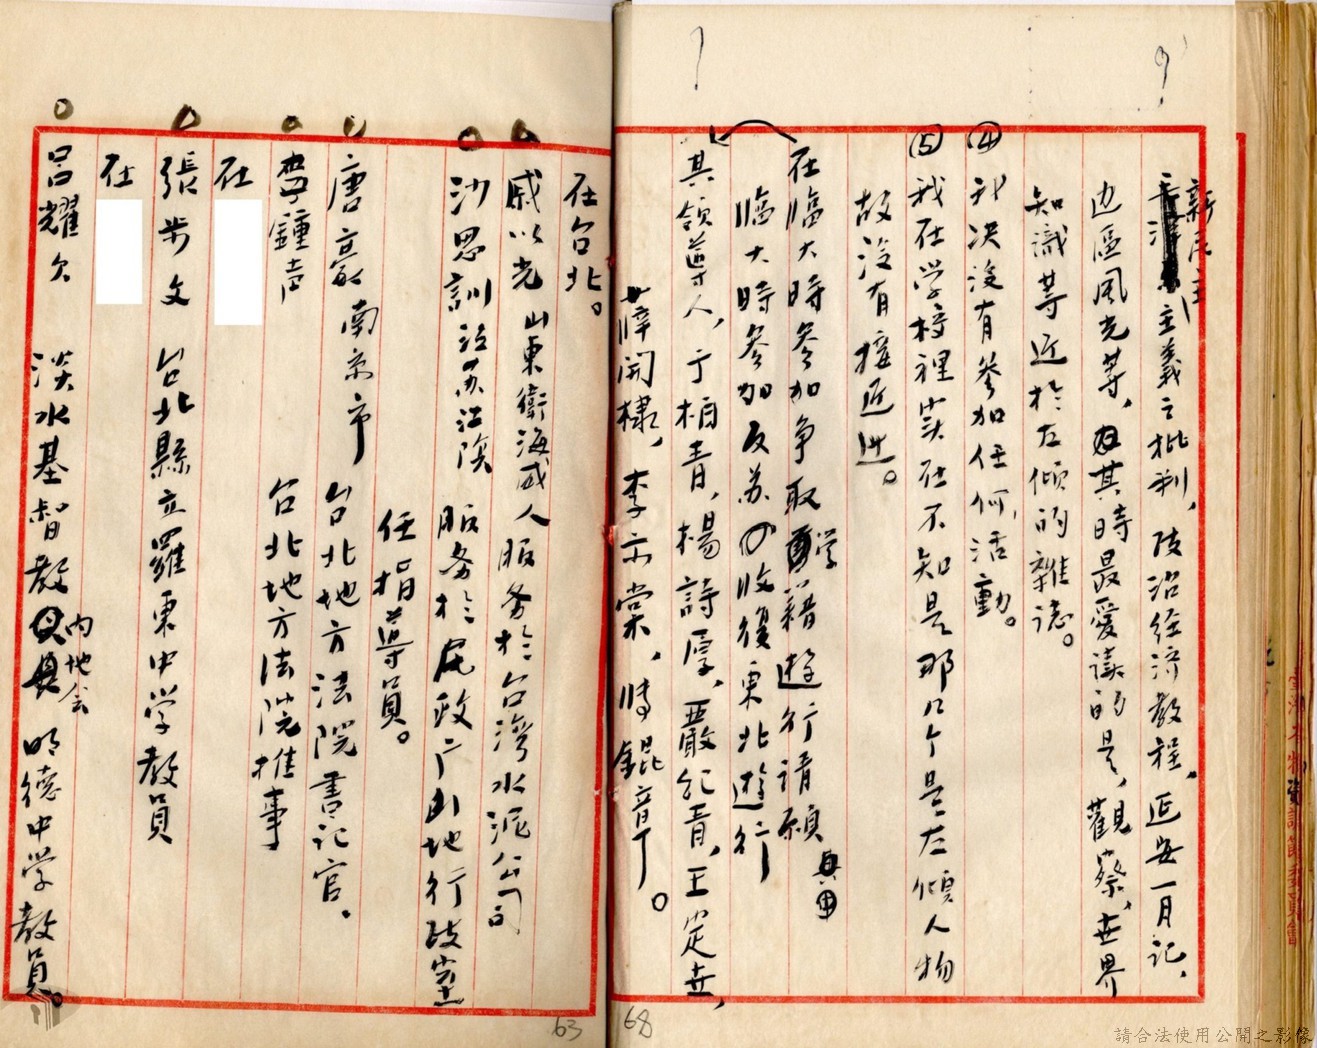 新民主
主義之批判，政治経済教程，延安一月記，
边區風光等，其時最爱読的是，觀察，世界
知識等近於左傾的雜誌。
④ 我决没有參加任何活動。
⑤ 我在学校裡实在不知是那几个是左傾人物
故没有接近过。
在臨大時參加争取学籍遊行請願
臨大時參加反苏收復東北遊行
其領導人，于柏青，楊詩厚，嚴紀青，王定世，
開棣，李宗棠，時錕章。
在台北。
戚以光 山東衛海威人 服务於台湾水泥公司
沙思訓 江苏江陰 服务於民政厅山地行政党
任指導員。
唐豪 南京市 台北地方法院書记官。
李鍾声 台北地方法院推事
在
張步文 台北縣立羅東中学教員
在
呂耀 淡水基督教
内地会
明德中学教員。
63
68
請合法使用公開之影像